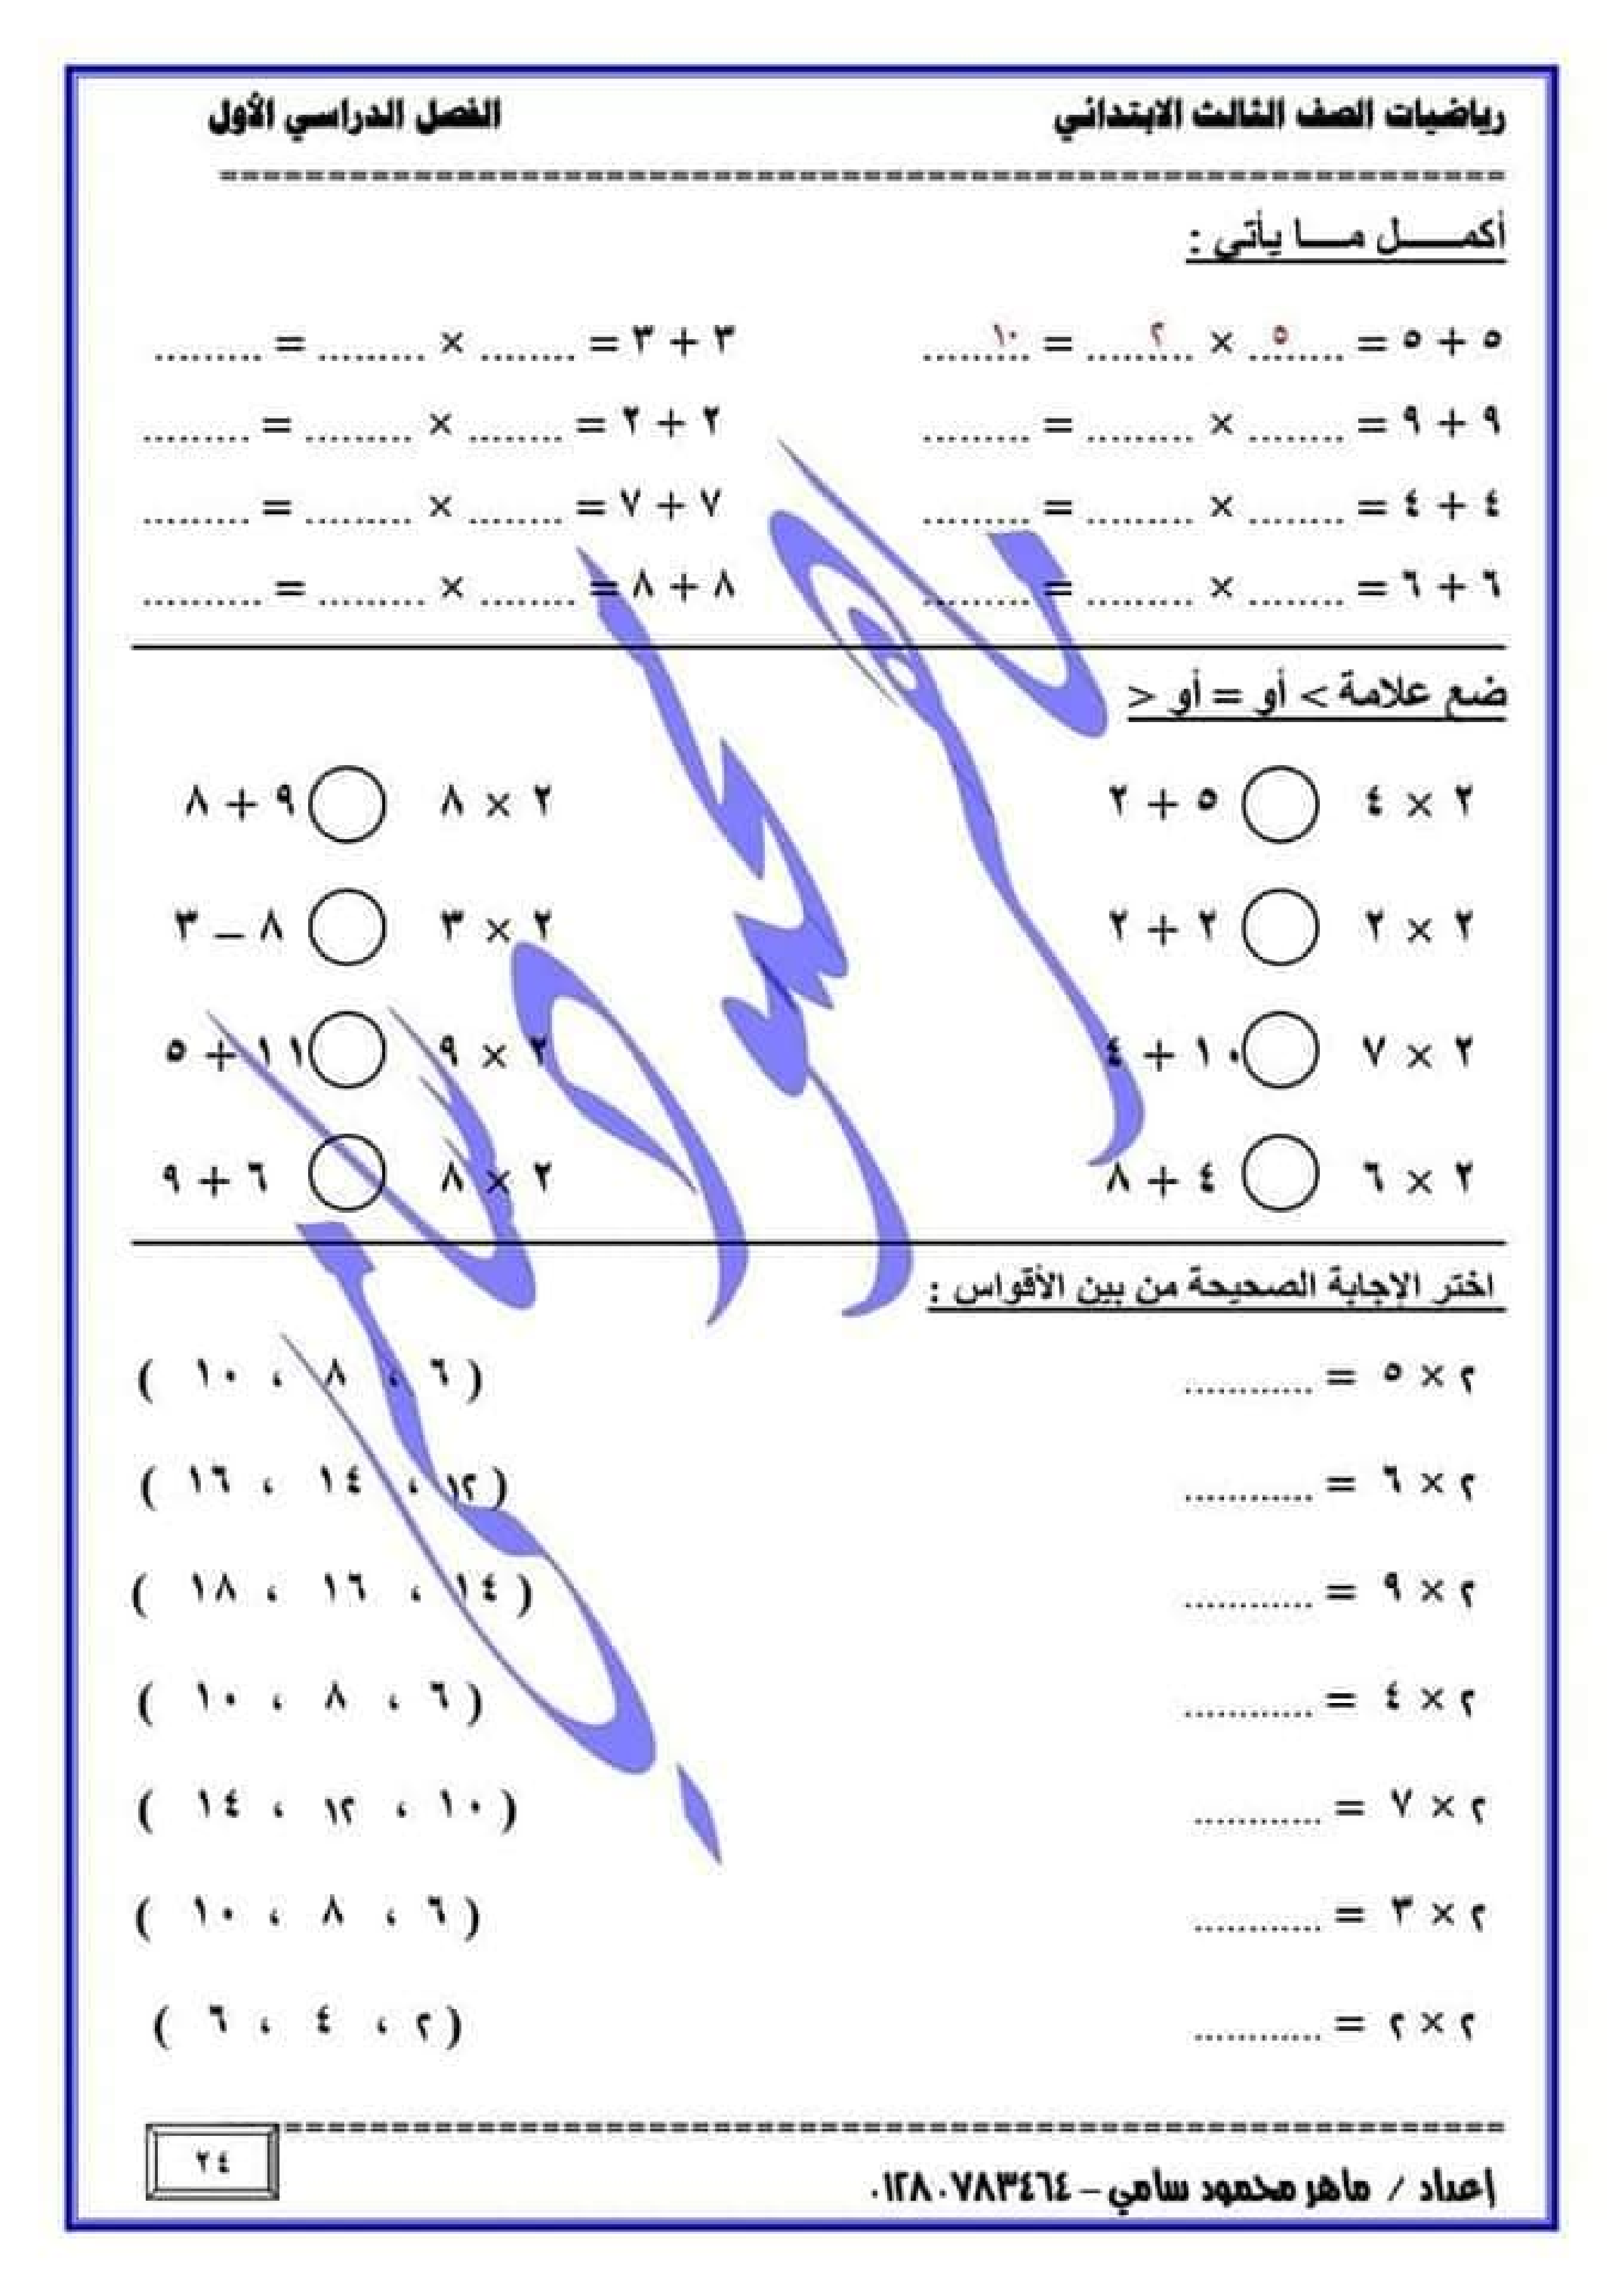 رياضيات الصف الثالث الابتدائي الفصل الدراسي الأول
أكمـــــل مـــا يأتي :
٥ + ٥ = ...٥... × ...٢... = ...١٠... ٣ + ٣ = ........ × ......... = .........
٩ + ٩ = ........ × ......... = ......... ٢ + ٢ = ........ × ......... = .........
٤ + ٤ = ........ × ......... = ......... ٧ + ٧ = ........ × ......... = .........
٦ + ٦ = ........ × ......... = ......... ٨ + ٨ = ........ × ......... = ..........
ضع علامة > أو = أو <
٢ × ٤ ◯ ٥ + ٢ ٢ × ٨ ◯ ٩ + ٨
٢ × ٢ ◯ ٢ + ٢ ٢ × ٣ ◯ ٨ – ٣
٢ × ٧ ◯ ١٠ + ٤ ٢ × ٩ ◯ ١١ + ٥
٢ × ٦ ◯ ٤ + ٨ ٢ × ٨ ◯ ٦ + ٩
اختر الإجابة الصحيحة من بين الأقواس :
٢ × ٥ = ............ ( ٦ ، ٨ ، ١٠ )
٢ × ٦ = ............ ( ١٢ ، ١٤ ، ١٦ )
٢ × ٩ = ............ ( ١٤ ، ١٦ ، ١٨ )
٢ × ٤ = ............ ( ٦ ، ٨ ، ١٠ )
٢ × ٧ = ............ ( ١٠ ، ١٢ ، ١٤ )
٢ × ٣ = ............ ( ٦ ، ٨ ، ١٠ )
٢ × ٢ = ............ ( ٢ ، ٤ ، ٦ )
٢٤
إعداد / ماهر محمود سامي – ٠١٢٨٠٧٨٣٤٦٤